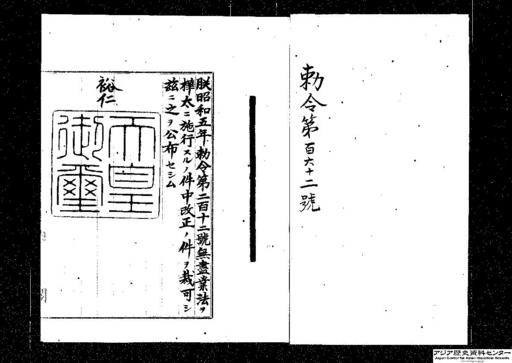 勅令第百六十二號
朕昭和五年勅令第二百十二號無盡業法ヲ
樺太ニ施行スルノ件中改正ノ件ヲ裁可シ
茲ニ之ヲ公布セシム
裕仁
天皇
御璽
アジア歴史資料センター
Japan Center for Asian Historical Records